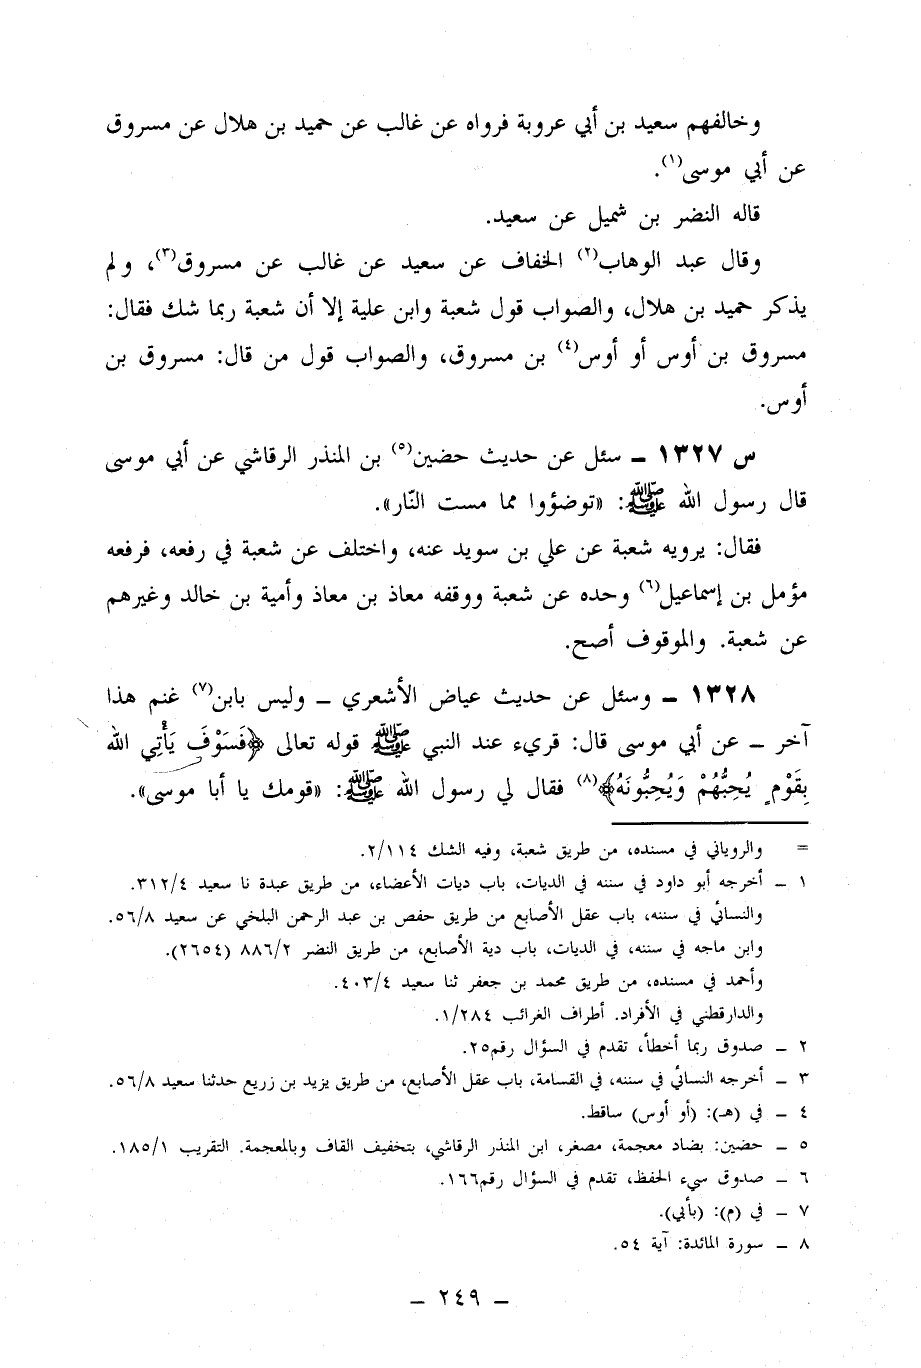 وخالفهم سعيد بن أبي عروبة فرواه عن غالب عن حميد بن هلال عن مسروق
عن أبي موسى(١).
قاله النضر بن شميل عن سعيد.
وقال عبد الوهاب(٢) الخفاف عن سعيد عن غالب عن مسروق(٣)، ولم
يذكر حميد بن هلال، والصواب قول شعبة وابن علية إلا أن شعبة ربما شك فقال:
مسروق بن أوس أو أوس(٤) بن مسروق، والصواب قول من قال: مسروق بن
أوس.
س ١٣٢٧ ـ سئل عن حديث حضين(٥) بن المنذر الرقاشي عن أبي موسى
قال رسول الله ﷺ: «توضؤوا مما مست النّار».
فقال: يرويه شعبة عن علي بن سويد عنه، واختلف عن شعبة في رفعه، فرفعه
مؤمل بن إسماعيل(٦) وحده عن شعبة ووقفه معاذ بن معاذ وأمية بن خالد وغيرهم
عن شعبة. والموقوف أصح.
١٣٢٨ ـ وسئل عن حديث عياض الأشعري ـ وليس بابن(٧) غنم هذا
آخر ـ عن أبي موسى قال: قريء عند النبي ﷺ قوله تعالى ﴿فَسَوْفَ يَأْتِي الله
بِقَوْمٍ يُحِبُّهُمْ وَيُحِبُّونَهُ﴾(٨) فقال لي رسول الله ﷺ: «قومك يا أبا موسى».
= والروياني في مسنده، من طريق شعبة، وفيه الشك ٢/١١٤.
١ ـ أخرجه أبو داود في سننه في الديات، باب ديات الأعضاء، من طريق عبدة نا سعيد ٣١٢/٤.
والنسائي في سننه، باب عقل الأصابع من طريق حفص بن عبد الرحمن البلخي عن سعيد ٥٦/٨.
وابن ماجه في سننه، في الديات، باب دية الأصابع، من طريق النضر ٨٨٦/٢ (٢٦٥٤).
وأحمد في مسنده، من طريق محمد بن جعفر ثنا سعيد ٤٠٣/٤.
والدارقطني في الأفراد. أطراف الغرائب ١/٢٨٤.
٢ ـ صدوق ربما أخطأ، تقدم في السؤال رقم٢٥.
٣ ـ أخرجه النسائي في سننه، في القسامة، باب عقل الأصابع، من طريق يزيد بن زريع حدثنا سعيد ٥٦/٨.
٤ ـ في (هـ): (أو أوس) ساقط.
٥ ـ حضين: بضاد معجمة، مصغر، ابن المنذر الرقاشي، بتخفيف القاف وبالمعجمة. التقريب ١٨٥/١.
٦ ـ صدوق سيء الحفظ، تقدم في السؤال رقم١٦٦.
٧ ـ في (م): (بأبي).
٨ ـ سورة المائدة: آية ٥٤.
ـ ٢٤٩ ـ